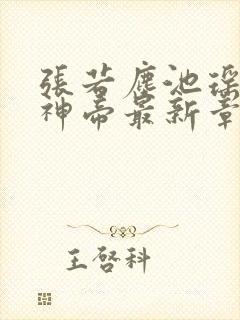 張若塵池瑤
神帝最新章
王啓科